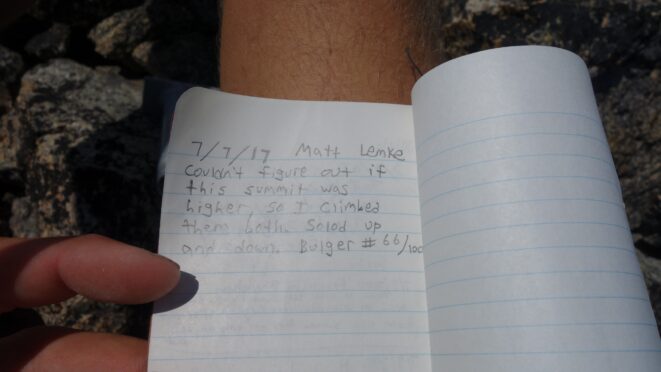 7/7/17 Matt Lemke
Couldn't figure out if
this summit was
higher, so I climbed
them both. Solod up
and down. Bulger #66/100